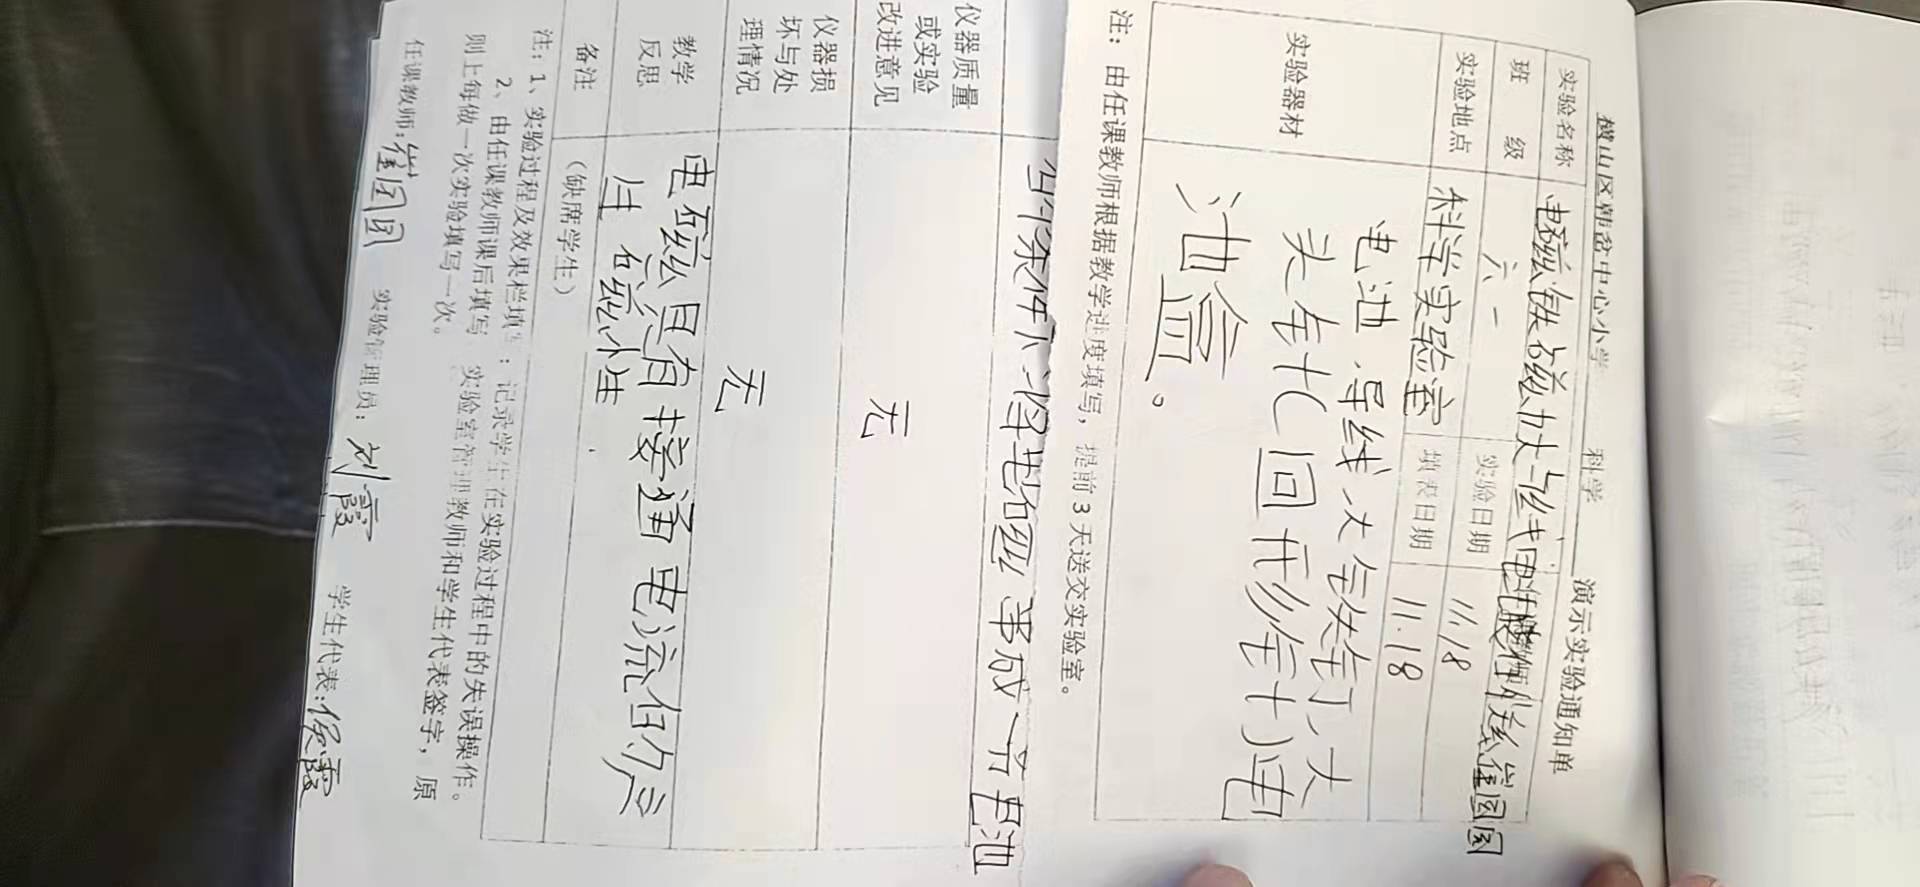 横山区韩岔中心小学 科学 演示实验通知单
实验名称 电磁铁磁力大与线电
班 级 六一 实验日期 11.18 崔团团
实验地点 科学实验室 填表日期 11.18
实验器材 电池、导线、大铁钉、大
头针(回形针)电
池盒。
注：由任课教师根据教学进度填写，提前3天送交实验室。
一节电池
仪器质量
或实验
改进意见
无
仪器损
坏与处
理情况
无
教学
反思
电磁具有接通电流的产
生磁性.
备注 (缺席学生)
注：1、实验过程及效果栏填 ：记录学生在实验过程中的失误操作。
2、由任课教师课后填写 实验室管理教师和学生代表签字，原
则上每做一次实验填写一次。
任课教师:崔团团 实验管理员：刘霞 学生代表:侯霞